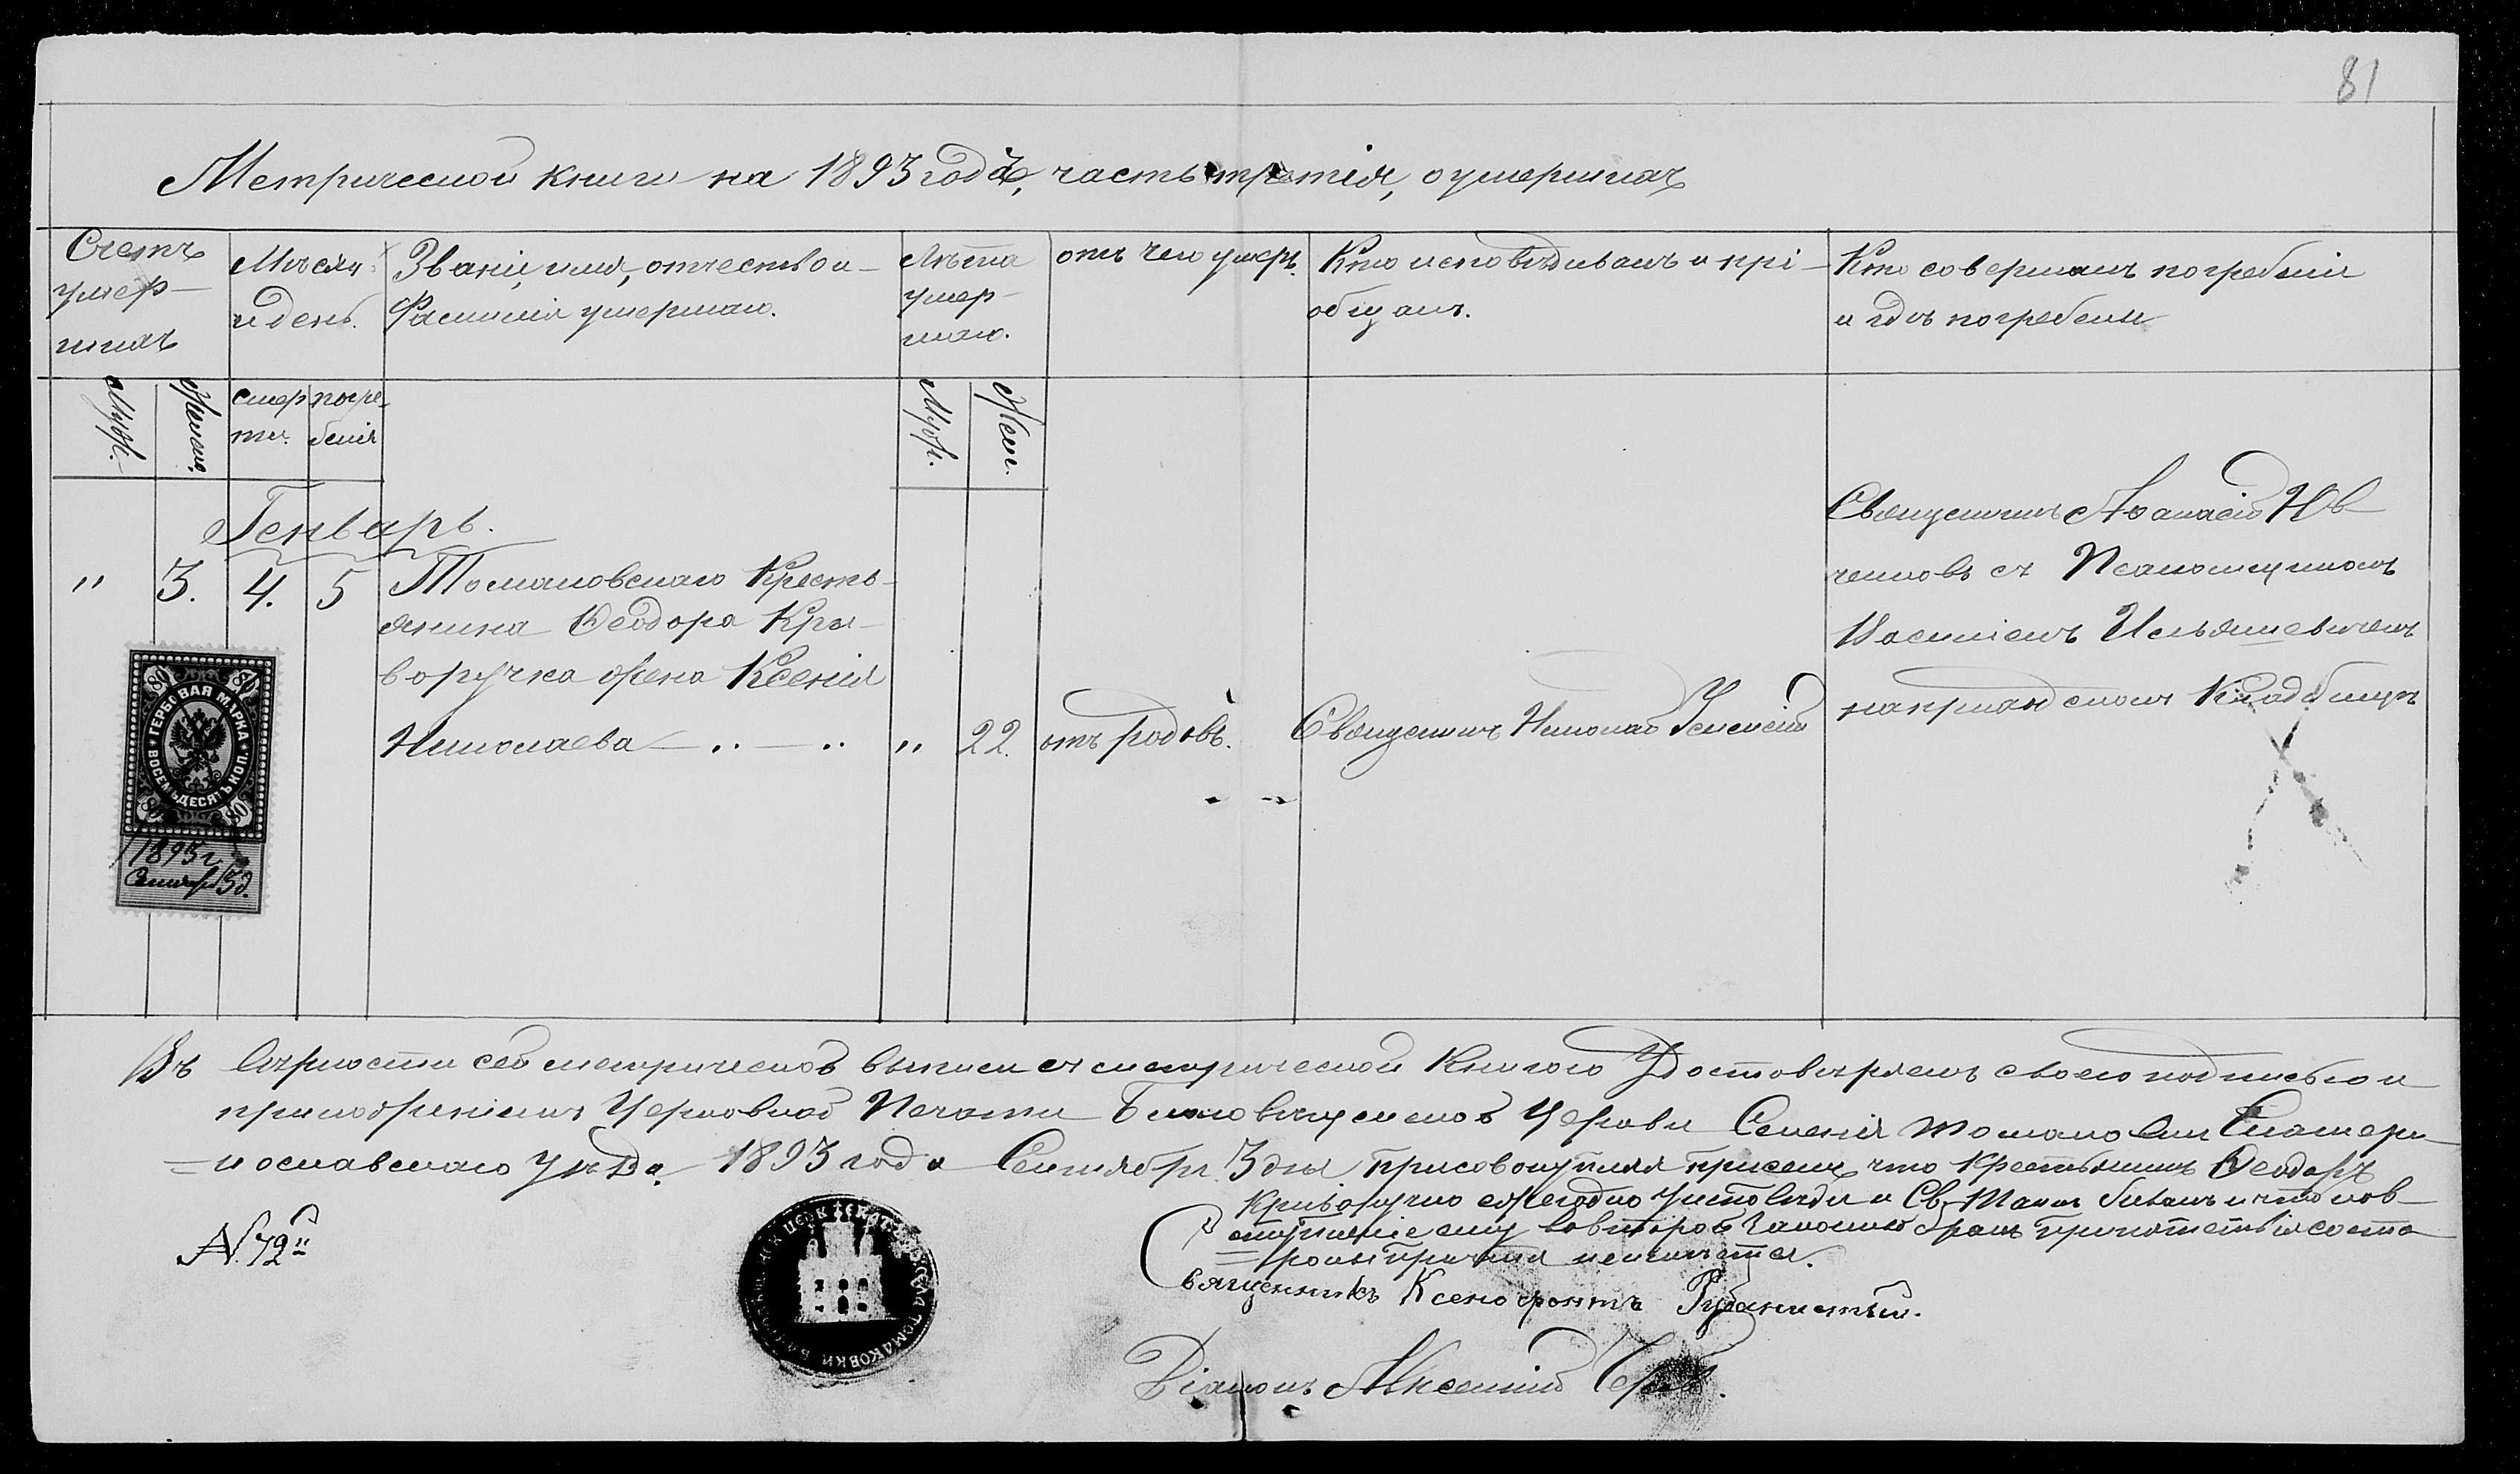 81
Метрической книги на 1893 годъ, часть третія, о умершихъ
Счетъ
умер-
шихъ
Мѣсяц
и день.
Званіе, имя, отчество и
Фамилія умершаго.
Лѣта
умер-
шаго.
отъ чего умеръ.
Кто исповѣдывалъ и прі-
общалъ.
Кто совершалъ погребеніе
и гдѣ погребены
Муж.
Женск.
смер
ти.
погре-
бенія
Муж.
Жен.
Генварь.
" 3. 4. 5
Томаковскаго Кресть-
янина Ѳеодора Кри-
воручка жена Ксенія
Николаева
" 22.
отъ родовъ.
Священникъ Николай
Священникъ Аѳанасій
съ Псаломщикомъ
Василіемъ Ильяшевичемъ
на приходскомъ Кладбищѣ
80 80
ГЕРБОВАЯ МАРКА
ВОСЕМЬДЕСЯТЪ КОП.
80 80
1893 г.
Сентябр 3 д.
Въ вѣрности сей метрической выписи съ метрической Книгою Удостовѣряемъ своею подписью и
приложеніемъ Церковной Печати Благовѣщенской Церкви Селенія Томаковки Екатери-
нославскаго Уѣзда. 1893 года Сентября 3 дня Присовокупляя при семъ, что Крестьянинъ Ѳеодоръ
Криворучко ежегодно у исповѣди и Св. Таин бывалъ и что на в-
ступленіе ему во второй Законный бракъ препятствія со сто
роны причта неимѣется.
Священникъ Ксенофонтъ
Діаконъ Алексій
N. 72й
ТОМАКОВКИ